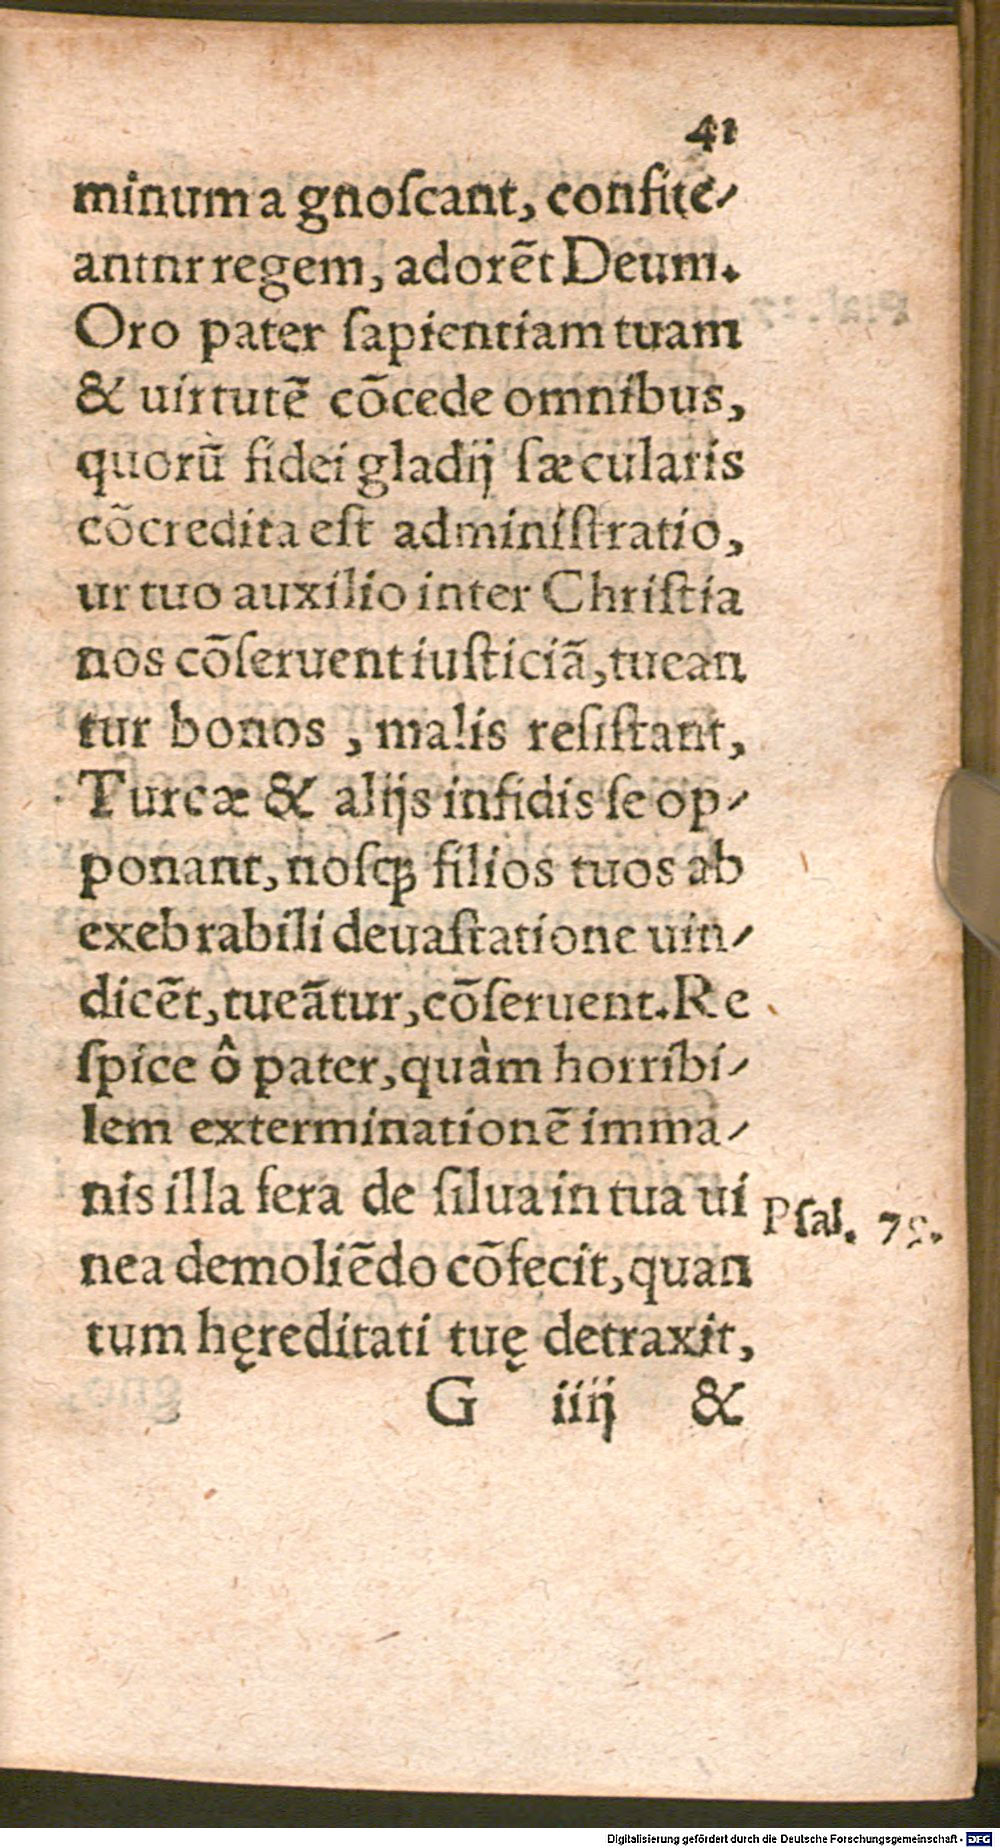 41
minum a gnoſcant, confite⸗
antnr regem, adorēt Deum.
Oro pater ſapientiam tuam
& uirtutē cōcede omnibus,
quorū fidei gladij ſæcularis
cōcredita eſt adminiſtratio,
ur tuo auxilio inter Chriſtia
nos cōſeruent iuſticiā, tuean
tur bonos , malis reſiſtant,
Turcæ & alijs infidis ſe op⸗
ponant, noſqꝫ filios tuos ab
exeb rabili deuaſtatione uin⸗
dicēt, tueātur, cōſeruent. Re
ſpice ô pater, quàm horribi⸗
lem exterminationē imma⸗
nis illa fera de ſilua in tua ui
Pſal. 79.
nea demoliēdo cōfecit, quan
tum hęreditati tuę detraxit,
G iiij &
Digitalisierung gefördert durch die Deutsche Forschungsgemeinschaft - DFG